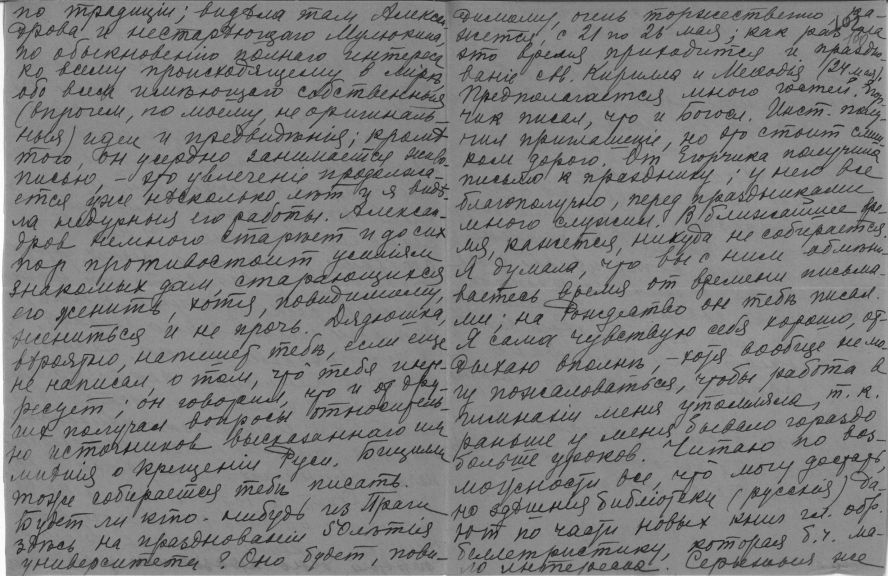 по традиціи; видѣла там Алексан-
дрова и нестарѣющаго Милюкина,
по обыкновенію полнаго интереса
ко всему происходящему в мирѣ,
обо всем имѣющаго собственныя
(впрочем, по моему, не оригиналь-
ныя) идеи и предвидѣнія; кромѣ
того, он усердно занимается живо-
писью, – это увлеченіе продолжа-
ется уже нѣсколько лѣт и я видѣ-
ла недурныя его работы. Алексан-
дров немного старѣет и до сих
пор противостоит усиліям
знакомых дам, старающихся
его женить, хотя, повидимому,
жениться и не прочь. Дядюшка,
вѣроятно, напишет тебѣ, если еще
не написал, о том, что тебя инте-
ресует; он говорил, что и от дру-
гих получал вопросы относитель-
но источников высказаннаго им
мнѣнія о крещеніи Руси.
тоже собирается тебѣ писать.
Будет ли кто-нибудь из Праги
здѣсь на праздновании 50лѣтія
университета? Оно будет, пови-
димому, очень торжественно, ка-
жется, с 21 по 26 мая; как раз на
это время приходится и праздно-
ваніе св. Кирилла и Меѳодія (24 мая).
Предполагается много гостей.
чик писал, что и Богосл. Инст. полу-
чил приглашеніе, но это стоит слиш-
ком дорого. От Егорчика получила
письмо к празднику; у него все
благополучно, перед праздниками
много служил. В ближайшее вре-
мя, кажется, никуда не собирается.
Я думала, что вы с ним обмѣни-
ваетесь время от времени письма-
ми; на Рождество он тебѣ писал.
Я сама чувствую себя хорошо, от-
дыхаю вполнѣ, – хотя вообще не мо-
гу пожаловаться, чтобы работа в
гимназіи меня утомляла, т.к.
раньше у меня бывало гораздо
больше уроков. Читаю по воз-
можности все, что могу достать,
но здѣшнія библіотеки (русскія) да-
ют по части новых книг гл. обр.
беллетристику, которая б.ч. ма-
ло интересна. Серьезныя же